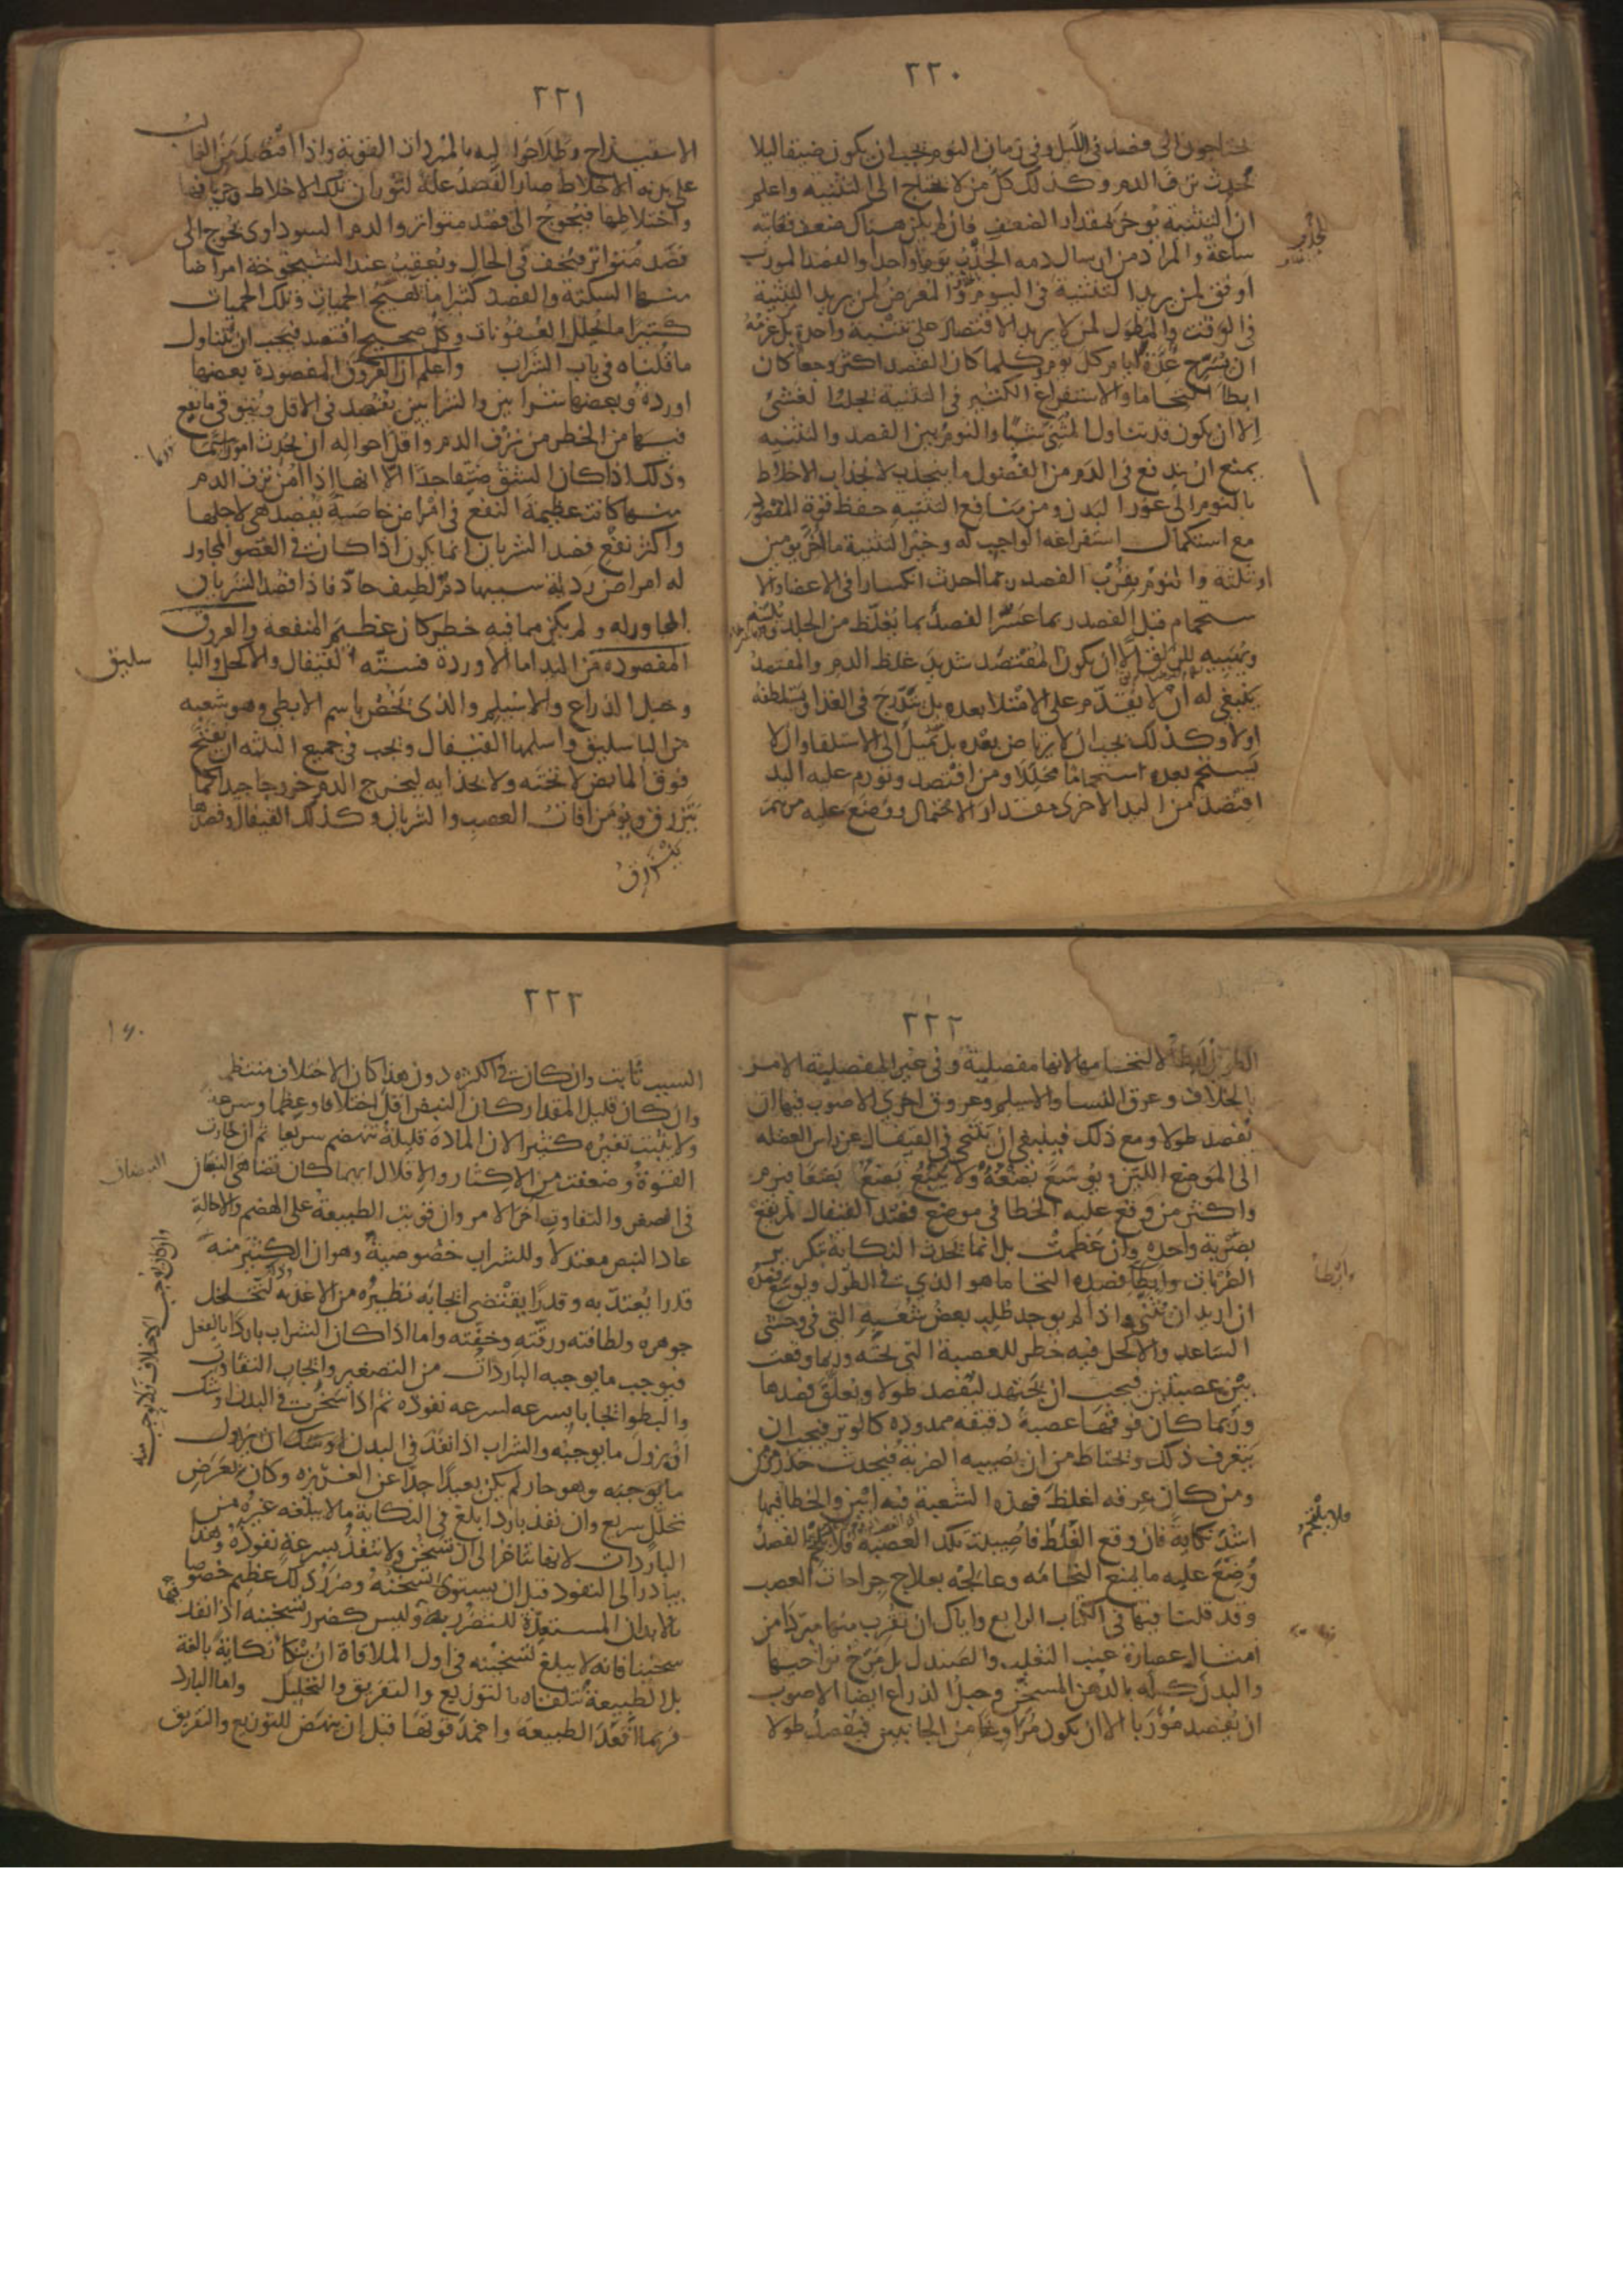 ٢٢٠
يحتاجون الى فصد فى الليل وفى زمان النوم يجب ان يكون ضيقا ليلا
يحدث نزف الدم وكذلك كل من لا يحتاج الى التثنية واعلم
ان التثنية توخر بمقدار الضعف فان لم يكن هناك ضعف فغايته
ساعة والمراد من ارسال دمه الجذب يوما واحدا والفصد المورب
اوفق لمن يريد التثنية فى اليوم والمعرض لمن يريد التثنية
فى الوقت والمطول لمن لا يريد الاقتصار على تثنية واحدة بل عزمه
ان يسرح عدة ايام كل يوم كلما كان الفصد اكثر وجعا كان
ابطا التحاما والاستفراغ الكثير فى التثنية يجلب الغشى
الا ان يكون قد تناول المثنى شيا والنوم بين الفصد والتثنيه
يمنع ان يندفع فى الدم من الفضول ما ينجذب لانجذاب الاخلاط
بالنوم الى غور البدن ومن منافع التثنيه حفظ قوة المفصود
مع استكمال استفراغه الواجب له وخير التثنية ما اخر يومين
او ثلثة والنوم بقرب الفصد ربما احدث انكسارا فى الاعضا والا
ستحمام قبل الفصد ربما عسر الفصد بما يغلظ من الجلد ويلينه
ويهييه للزلق الا ان يكون المفتصد شديد غلظ الدم والمفتصد
ينبغى له ان لا يقدم على الامتلا بعده بل يتدرج فى الغذا ويستلطفه
اولا وكذلك يجب ان لا يرتاض بعده بل يميل الى الاستلقا وان لا
يستحم بعده استحماما محللا ومن افتصد وتورم عليه اليد
افتصد من اليد الاخرى مقدار الاحتمال ووضع عليه مرهم
٢٢١
الاسفيداج وطلا حواليه بالمبردات القوية واذا افتصد من الغالب
على بدنه الاخلاط صار الفصد علة لثوران تلك الاخلاط وجريانها
واختلاطها فيحوج الى فصد متواتر والدم السوداوى يحوج الى
فصد متواتر فيخف فى الحال ويعقب عند الشيخوخة امراضا
منها السكتة والفصد كثيرا ما يهيج الحميات وتلك الحميات
كثيرا ما تحلل العفونات وكل صحيح افتصد فيجب ان يتناول
ما قلناه فى باب الشراب واعلم ان العروق المفصودة بعضها
اوردة وبعضها شرايين والشرايين تفصد فى الاقل ويتوقى ما يقع
فيها من الخطر من نزف الدم واقل احواله ان يحدث امورسما
وذلك اذا كان الشق ضيقا جدا الا انها اذا امن نزف الدم
منها كانت عظيمة النفع فى امراض خاصية تفصد هى لاجلها
واكثر نفع فصد الشريان انما يكون اذا كانت فى العضو المجاور
له امراض ردية سببها دم لطيف حاد فاذا فصد الشريان
المجاور له ولم يكن مما فيه خطر كان عظيم المنفعة والعروق
المفصودة من اليد اما الاوردة فستة القيفال والاكحل والبا
سليق
وحبل الذراع والاسيلم والذى يخص باسم الابطى وهو شعبه
من الباسليق واسلمها القيفال ويجب فى جميع الثلثه ان يفتح
فوق المابض لا تحته ولا بحذايه ليخرج الدم خروجا جيدا كما
يترزق ويومن افات العصب والشريان وكذلك القيفال وفصدها
يترزق
٢٢٢
الطويل ابطا لالتحامها لانها مفصلية وفى غير المفصلية الامر
بالخلاف وعرق النسا والاسيلم وعروق اخرى الاصوب فيها ان
تفصد طولا ومع ذلك فينبغى ان يتنحى فى القيفال عن راس العضله
الى الموضع اللين ويوسع بضعه ولا يتبع بضع بضعا فيرم
واكثر من وقع عليه الخطا فى موضع فصد القيفال لم يقع
بضربة واحده وان عظمت بل انما تحدث النكاية بتكرير
الضربات وابطا فصده التحاما هو الذى فى الطول ويوسع فصده
ان اريد ان يثنى واذا لم يوجد طلب بعض شعبه التى فى وحشى
الساعد والاكحل فيه خطر للعصبة التى تحته وربما وقعت
بين عصبتين فيجب ان يجتهد ليفصد طولا ويعلق فصدها
وربما كان فوقها عصبة دقيقه ممدوده كالوتر فيجب ان
يتعرف ذلك ويحتاط من ان تصيبه الضربة فيحدث خدر مزمن
ومن كان عرقه اغلظ فهذه الشعبة فيه ابين والخطا فيها
اشد نكاية فان وقع الغلط فاصيبت تلك العصبة فلا تلحم الفصد
وضع عليه ما يمنع التحامه وعالجه بعلاج جراحات العصب
وقد قلنا فيها فى الكتاب الرابع واياك ان تقرب منها مبردا من
امثال عصارة عنب الثعلب والصندل بل مرخ نواحيها
والبدن كله بالدهن المسخن وحبل الذراع ايضا الاصوب
ان يفصد موربا الا ان يكون مراوغا من الجانبين فيفصد طولا
فلا يلحم
٢٢٣
السبب ثابت وان كانت فى الكثره دون هذا كان الاختلاف منتظما
وان كان قليل المقدار كان النبض اقل اختلافا وعظما وسرعة
ولا يثبت تغيره كثيرا لان المادة قليلة تنهضم سريعا ثم ان خارت
القوة وضعفت من الاكثار والاقلال ايهما كان تضاهى النبضان
فى الصغر والتفاوت اخر الامر وان قويت الطبيعة على الهضم والاحالة
عاد النبض معتدلا وللشراب خصوصية وهو ان الكثير منه
وان كان يوجب الاختلاف فلا يوجب منه
قدرا يعتد به وقدرا يقتضى ايجابه نظيره من الاغذيه وذلك لتخلخل
جوهره ولطافته ورقته وخفته واما اذا كان الشراب باردا بالفعل
فيوجب ما يوجبه الباردات من التصغير وايجاب التفاوت
والبطو ايجابا بسرعه لسرعه نفوذه ثم اذا سخن فى البدن اوشك
ان يزول ما يوجبه والشراب اذا نفذ فى البدن
ما يوجبه وهو حار لم يكن بعيدا جدا عن الغريزه وكان بعرض
تحلل سريع وان نفذ باردا بلغ فى النكاية ما لا يبلغه غيره من
الباردات لانها تتاخر الى ان تسخن ولا تنفذ بسرعة نفوذه وهذا
يبادر الى النفوذ قبل ان يستوى تسخنه وضرر ذلك عظيم خصوصا
بالابدان المستعدة للتضرر به وليس كضرر تسخينه اذا نفذ
سخينا فانه لا يبلغ تسخينه فى اول الملاقاة ان ينكا نكاية بالغة
بل الطبيعة تتلقاه بالتوزيع والتفريق والتحليل واما البارد
فربما اقعد الطبيعة واخمد قوتها قبل ان ينهض للتوزيع والتفريق